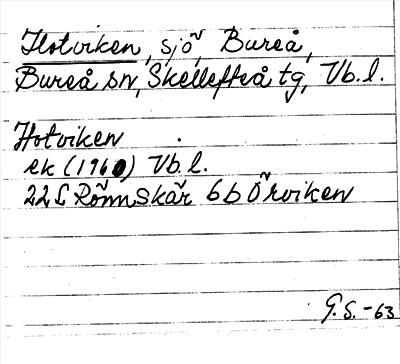 Hotviken, sjö, Bureå,
Bureå sn, Skellefteå tg, Vb.l.
Hotviken
ek (1960) Vb.l.
22 L Rönnskär 6b Örviken
G.S. -63